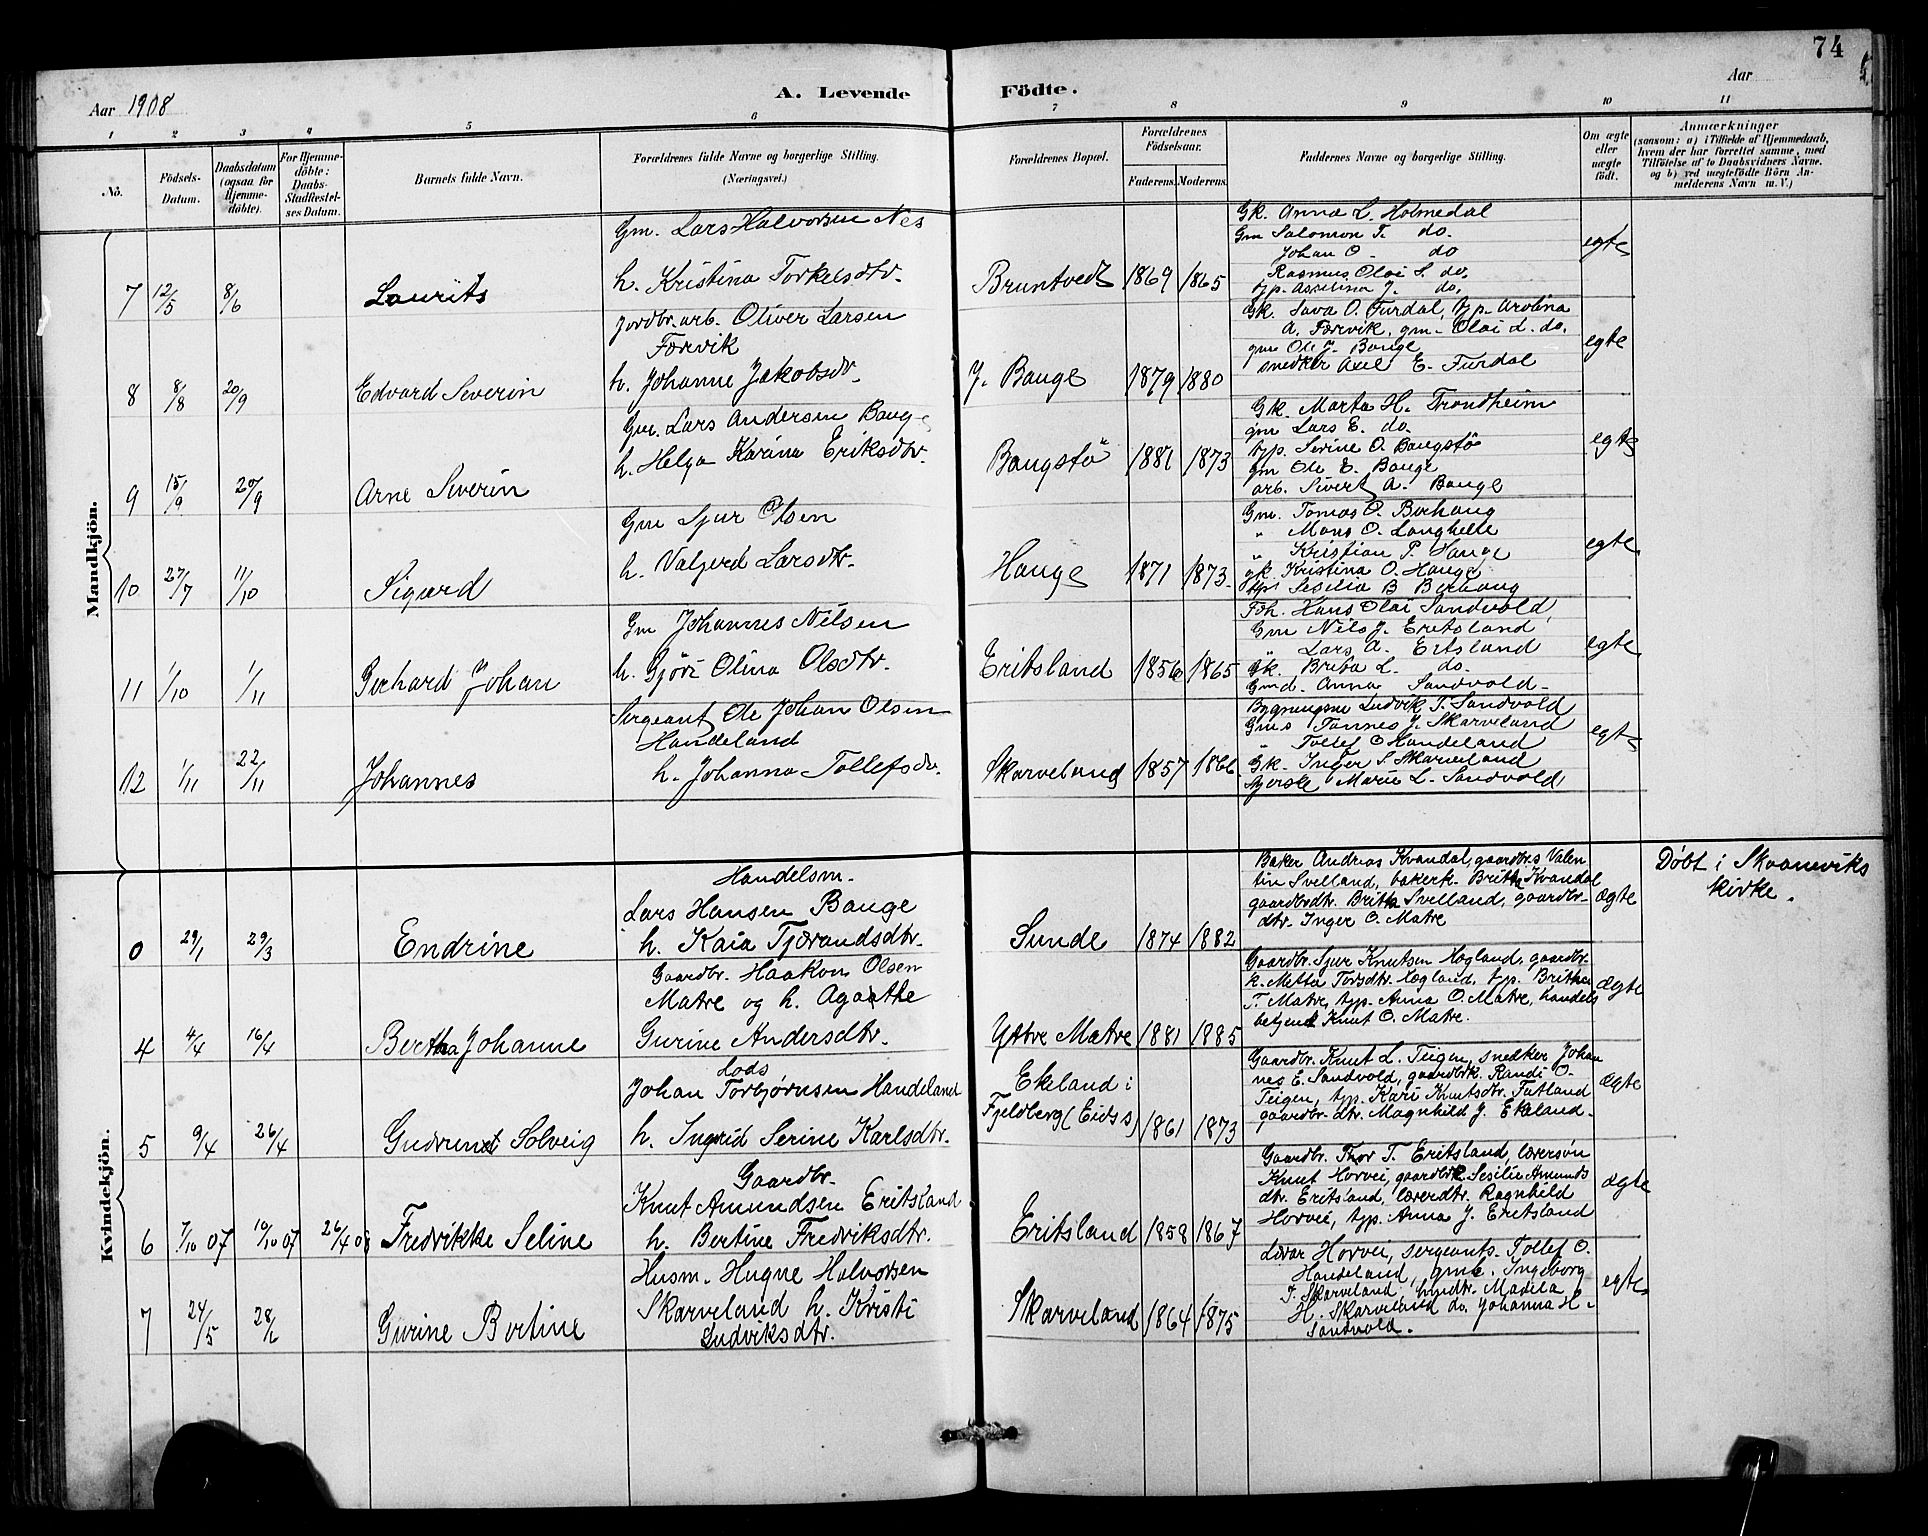 74
Aar 1908
A. Levende Födte.
Aar
1 2 3 4 5 6 7 8 9 10 11
No.
Födsels-Datum.
Daabsdatum (ogsaa for Hjemmedöbte).
For Hjemmedöbte: Daabs-Stadfæstelses Datum.
Barnets fulde Navn.
Forældrenes fulde Navne og borgerlige Stilling.
(Næringsvei.)
Forældrenes Bopæl.
Forældrenes Födselsaar.
Faderens. Moderens.
Faddernes Navne og borgerlige Stilling.
Om ægte eller uægte födt.
Anmærkninger
(saasom: a) i Tilfælde af Hjemmedaab,
hvem der har forrettet samme, med
Tilföielse af to Daabsvidners Navne.
og b) ved uægtefödte Börn An-
melderens Navn m. V.)
Mandkjön.
7 12/5 8/6 Laurits
Gm. Lars Halvorsen Nes
h. Kristina Torkelsdtr.
Bruntvedt 1869 1865
Gk. Anna L. Holmedal
Gm Salomon T. do.
Johan O. do
Rasmus Olai S. do.
typ. Asselina J. do.
egte
8 8/8 20/9 Edvard Severin
jordbr. arb. Oliver Larsen
Færvik
h. Johanne Jakobsdtr.
J. Bauge 1879 1880
Gk. Sava O. Furdal, typ. Arolina
A. Færvik, gm. Olai L. do.
gm Ole J. Bauge
snedker Axel E. Furdal
egte
9 15/9 20/9 Arne Severin
Gm. Lars Andersen Bauge
h. Helga Karina Eriksdtr.
Baugstø 1881 1873
Gk. Marta H. Trondheim
gm Lars E. do.
typ. Serine O. Baugstø
gm Ole E. Bauge
arb. Sivert A. Bauge
egte
10 27/7 11/10 Sigurd
Gm Sjur Olsen
h. Valgerd Larsdtr.
Hauge 1871 1873.
Gm. Tomas O. Berhaug
" Mons O. Langhelle
" Kristian P. Hauge
gk. Kristina O. Hauge
typ. Sesilia B Berhaug
egte
11 1/10 1/11 Gerhard Johan
Gm Johannes Nilsen
h. Gjöri Olina Olsdtr.
Eritsland 1856 1865
Foh. Hans Olai Sandvold
Gm Nils J. Eritsland
" Lars A. Eritsland
Gk. Brita L. do.
Gmd. Anna Sandvold.
egte
12 1/11 22/11 Johannes
Sergeant Ole Johan Olsen
Handeland
h. Johanna Tollefsdtr.
Skarveland 1857 1866
Ludvik T. Sandvold
Gms Tannes J. Skarveland
" Tollef O Handeland
Gk. Inger S Skarveland
Marie L. Sandvold
egte
Kvindekjön.
0 29/1 29/3 Endrine
Handelsm.
Lars Hansen Bauge
h. Kaia Tjærandsdtr.
Sunde 1874 1882
Baker Andreas Kvandal, gaardbrs Valen
tin Svelland, bakerk. Britha Kvandal
gaardbrdtr. Britha Svelland, gaardbr-
dtr. Inger O. Matre
ægte
Døbt i Skaaneviks
kirke.
4 4/4 16/4 Bertha Johanne
Gaardbr. Haakon Olsen
Matre og h. Agathe
Gurine Andersdtr.
Yttre Matre 1881 1885
Gaardbr. Sjur Knutsen Høgland, gaardbr.
k. Metta Torsdtr. Høgland, typ. Britha
T. Matre, typ. Anna O. Matre, handels
betjent Knut O. Matre.
ægte
5 9/4 26/4 Gudrun Solveig
Lods
Johan Torbjørnsen Handeland
h. Ingrid Serine Karlsdtr.
Ekeland i
Fjeldberg (Eidss) 1861 1873
Gaardbr. Knut L. Teigen, snedker Johan
nes E. Sandvold, gaardbrk. Randi O.
Teigen, typ. Kari Knutsdtr. Tutland
gaardbr. dtr. Magnhild J. Ekeland.
ægte
6 7/10 07 10/10 07 26/4 08 Fredrikke Seline
Gaardbr.
Knut Amundsen Eritsland
h. Bertine Fredriksdtr.
Eritsland 1858 1867
Gaardbr. Thor T. Eritsland, lærersøn
Knut Horvei, gaardbrk Sesilie Amunds
dtr. Eritsland, lærerdtr. Ragnhild
Horvei, typ. Anna J. Eritsland
ægte
7 24/5 28/6 Gurine Bertine
Husm. Hugne Halvorsen
Skarveland h. Kristi
Ludviksdtr.
Skarveland 1864 1875
Lærer Horvei, sergeants. Tollef O.
Handeland, gmk. Ingeborg
T. Skarveland, hmdtr. Madela
H. Skarveland do. Johanna H.
Sandvold.
egte